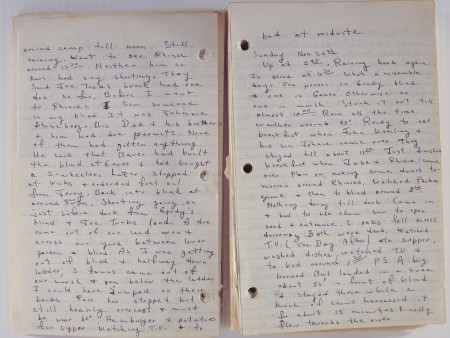 around camp till noon. Still
raining. Went to see Rhines
around 12:30. Neither him or
had any shooting. They
said Joe Tucks. bunch had one
doe so far. Before I went
to Rhines I seen someone
in my blind. It was Johnnie
his Dad & his
& him had doe permits. None
of them had gotten anything.
He said that Dave had built
the blind Ed uses & had bought
a Stopped
at Vicks & ordered fuel oil
from Jerry. Back into blind at
around 2 Shooting going on
just before dark from Gordy's
blind & Joe Tucks land. A doe
come out of our land went
across our yard between lower
garden & blind. As I was getting
out of blind & halfway down
ladder, 3 fawns came out of
our marsh & ran below the ladder
I could have jumped on their
backs. Rain has stopped but
still heavily overcast & must
be near 50° Hamburger & potatoes
for supper. Watching T.V. & to
bed at midnite
Sunday Nov. 20th
Up at 5 Raining hard again
In blind at 6 What a miserable
day. One person in Gordy blind
& one in Gene Otherwise no
one in marsh. Stuck it out till
almost 10 Rain all the time.
Weather around 45° Ready to eat
breakfast when John
his son Johnie came over. They
stayed till about 12 Just finished
breakfast when Jake & Rhine came
over. Plan on making some drives
morrow around Rhines. Watched Packer
game & then to blind around 3
Nothing doing till dark. Came in
& had to use chain saw to open
road entrance. 2 oaks fell across
driveway Both were dead. Watched
T.V. (The Day After) ate supper,
washed dishes, watched T.V. &
to bed around 1 P.S. A big
horned Owl landed in a tree
about 50' in front of blind
& stayed there while a
bunch of crows harrassed it
for about 15 minutes finally
flew towards the river